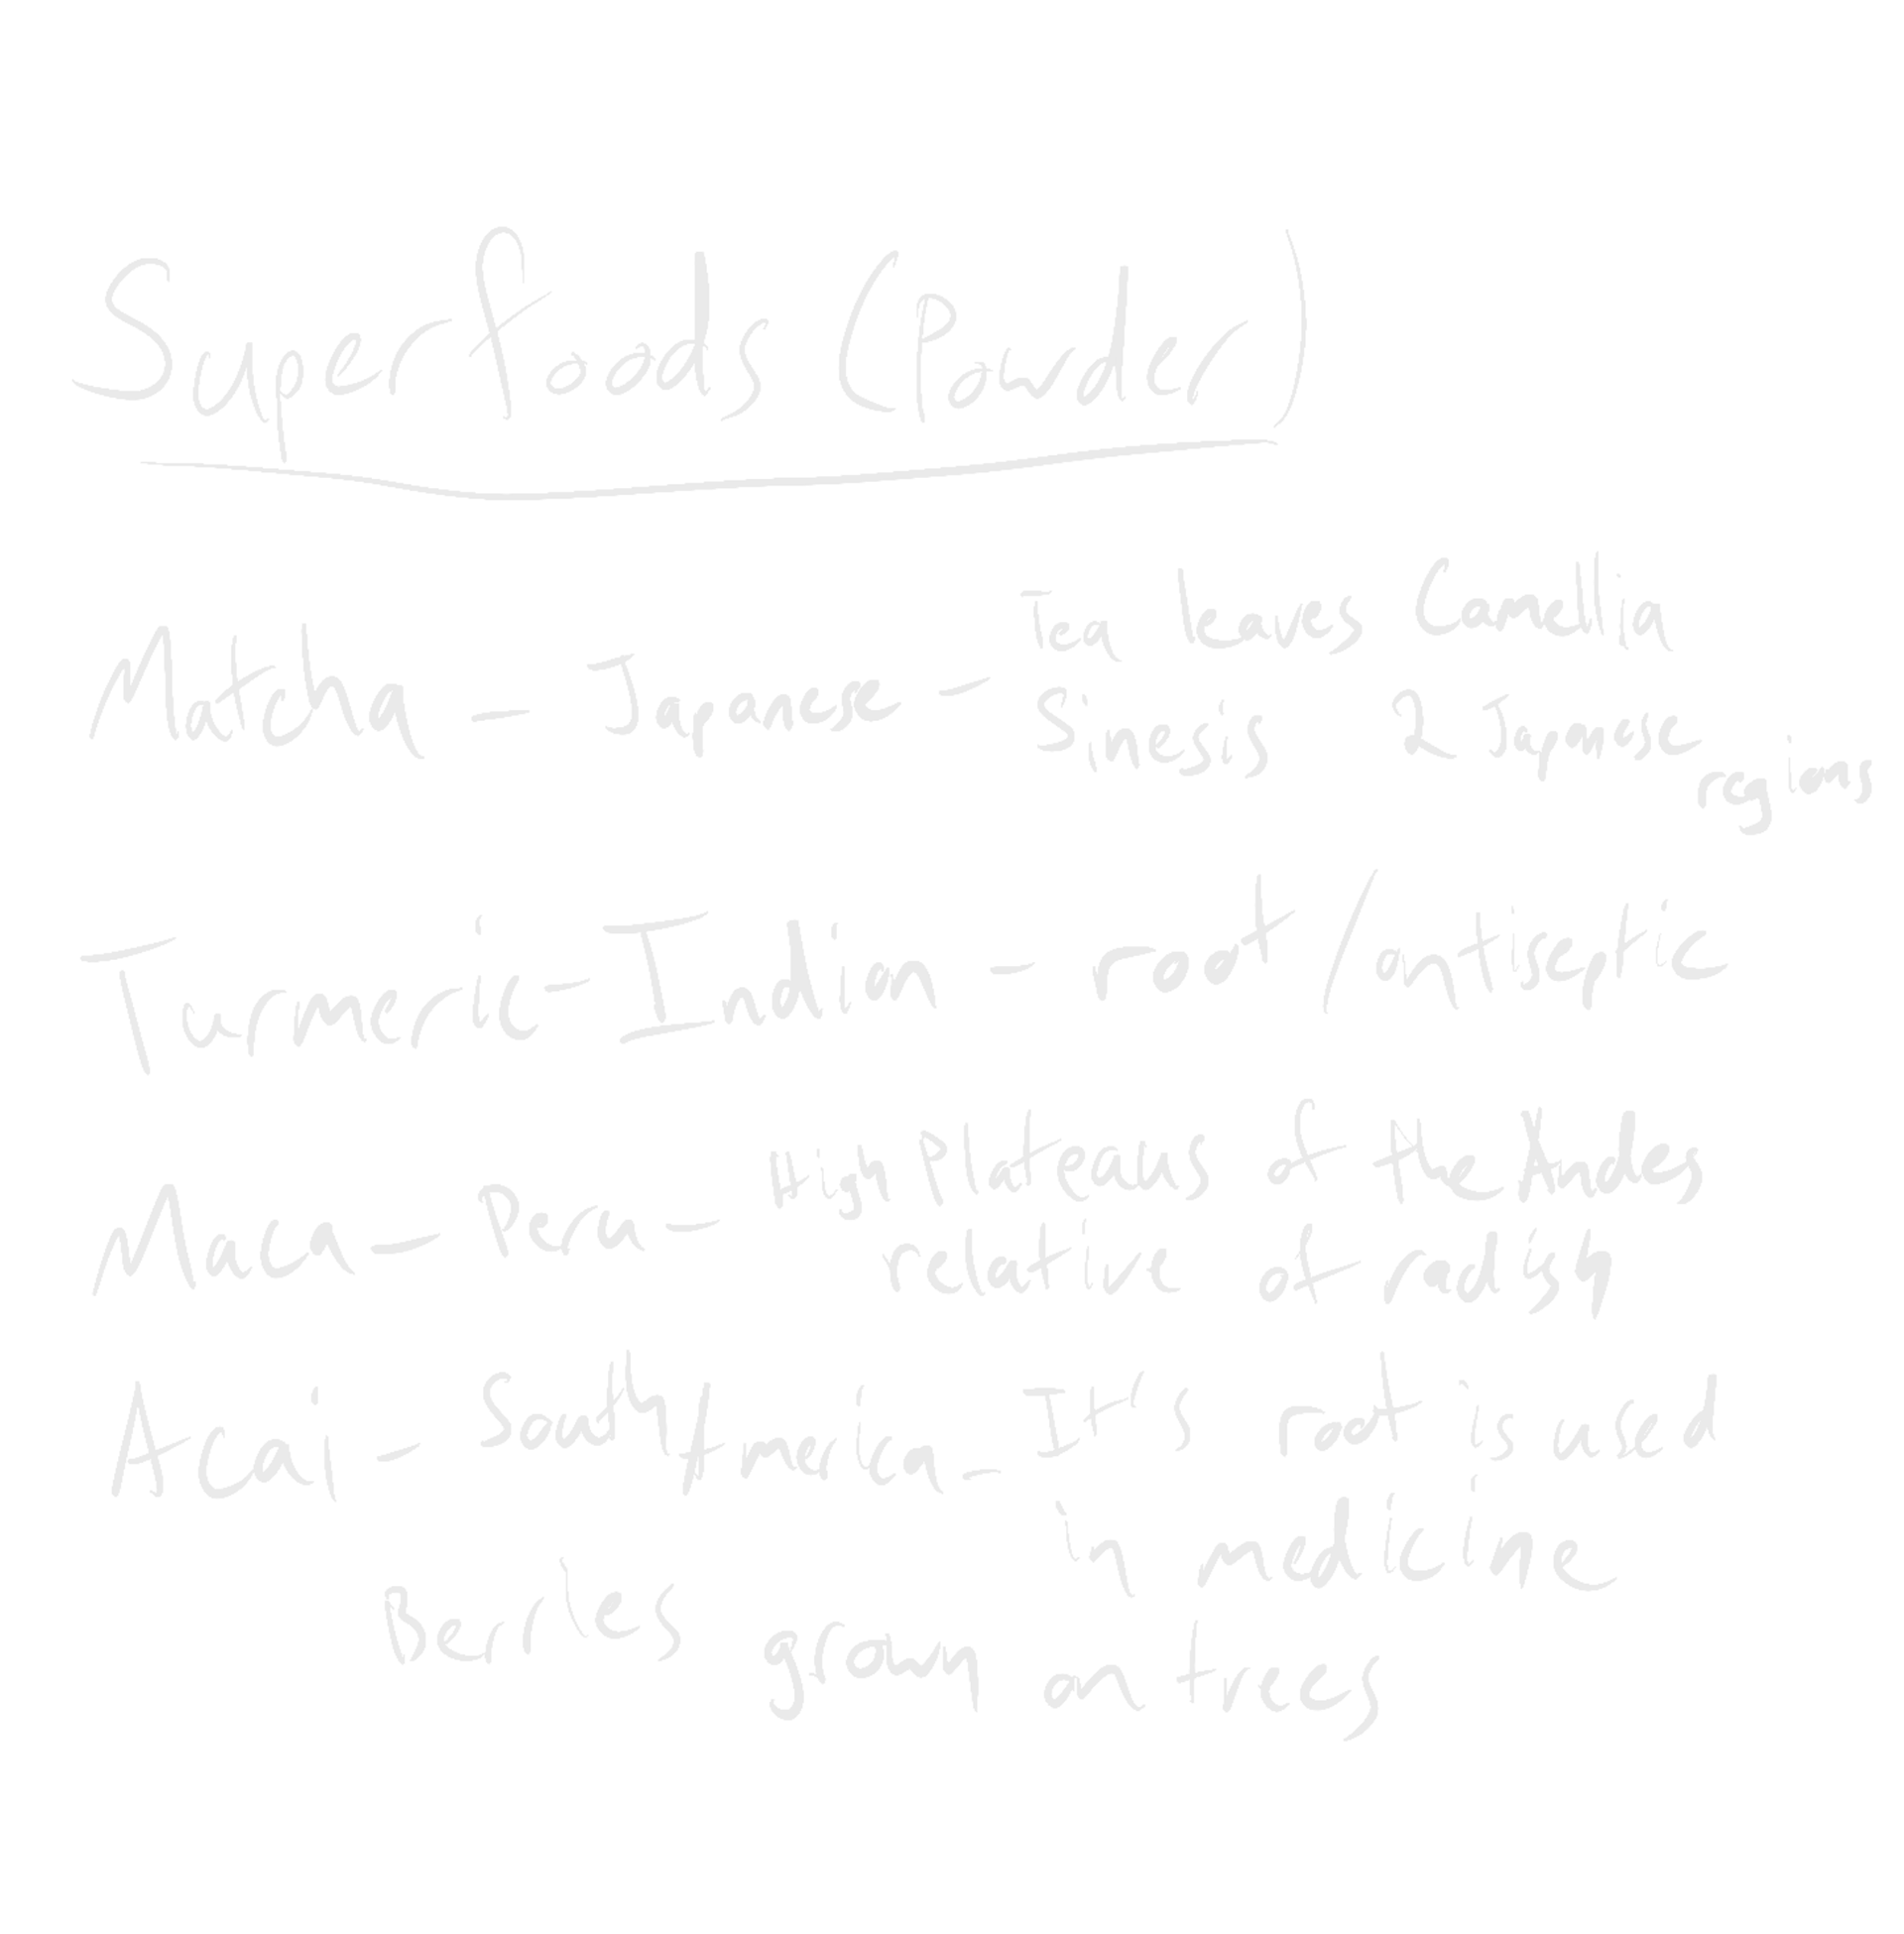 Superfoods (Powder)
Matcha - Japanese - Tea leaves Camellia
Sinesis 2 Japanese
regions
Turmeric - Indian - root / antiseptic
Maca - Peru - High Plateaus of the Andes
relative of radish
Acai - South America - It's root is used
in medicine
Berries grown on trees